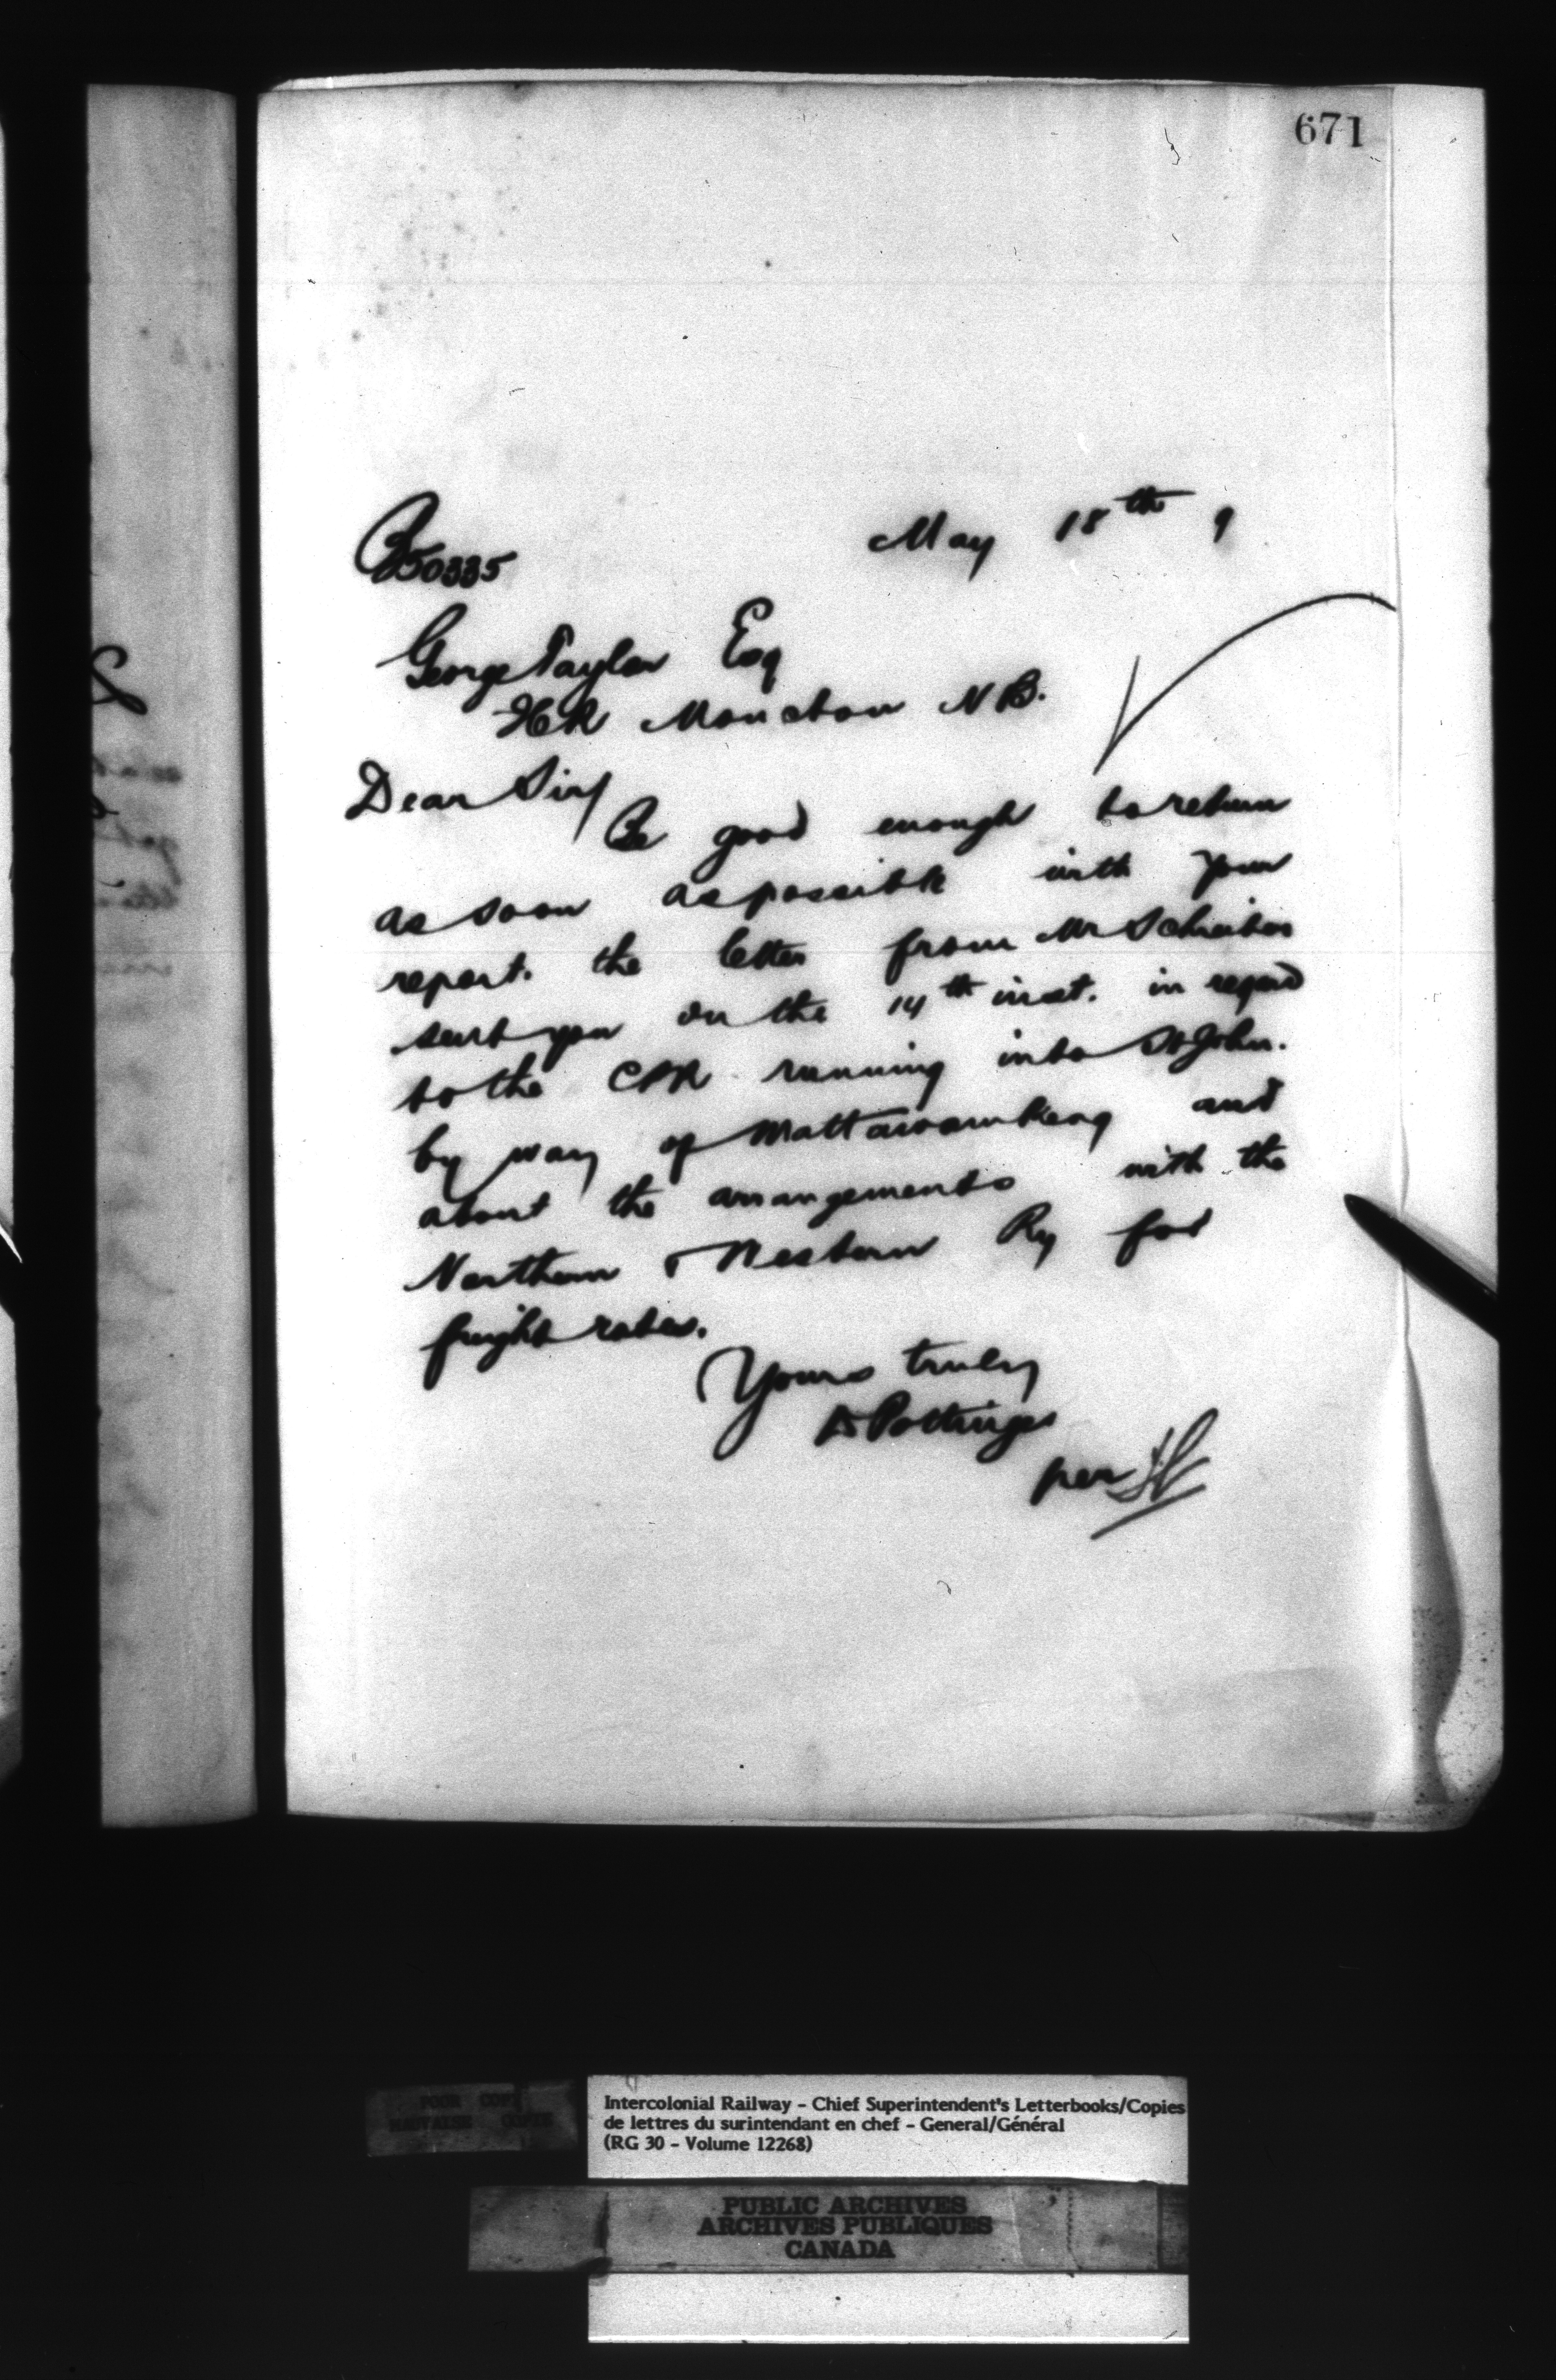 671
May 18th 9
B50335
George Taylor Esq
ICR Moncton N B.
Dear Sir/
Be good enough to return
as soon as possible with your
report. the letter from Mr Schreiber
sent you on the 14th inst. in regard
to the CPR running into St John.
by way of Mattawamkeag and
about the arrangements with the
Northern & Western Ry for
freight rates.
Yours truly
D Pottinger
per
POOR COPY
MAUVAISE COPIE
Intercolonial Railway - Chief Superintendent's Letterbooks/Copies
de lettres du surintendant en chef - General/Général
(RG 30 - Volume 12268)
PUBLIC ARCHIVES
ARCHIVES PUBLIQUES
CANADA